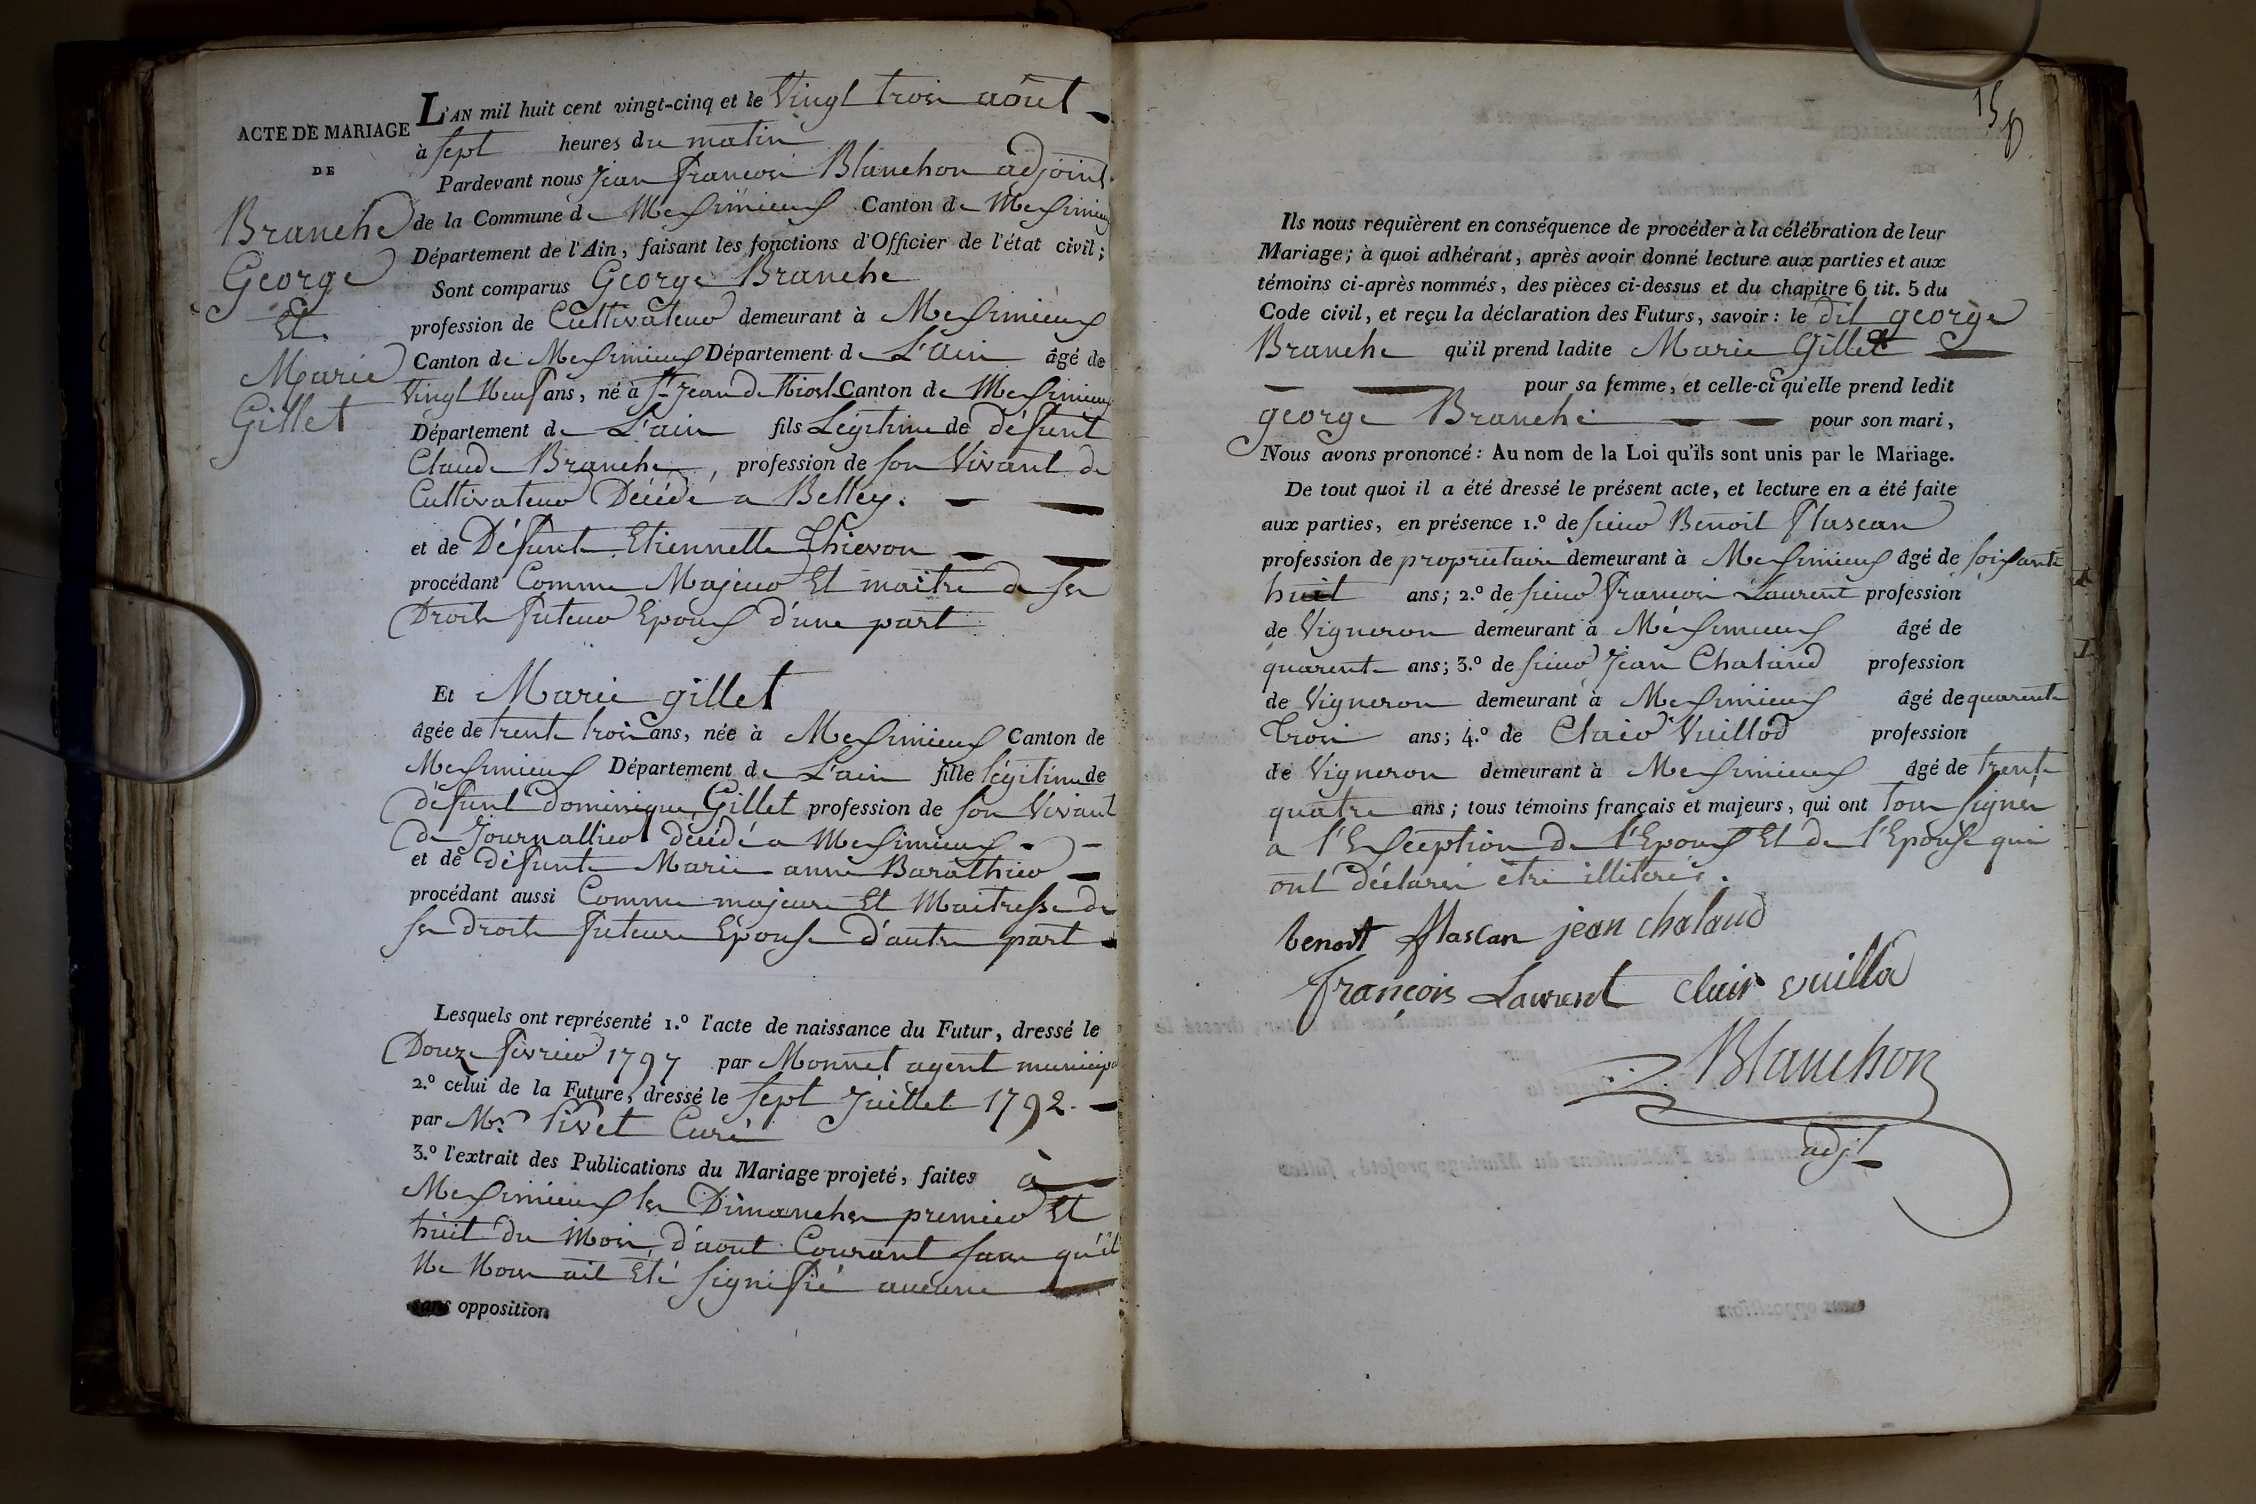 ACTE DE MARIAGE
DE
Branche
George
Et
Marie
Gillet
L'AN mil huit cent vingt-cinq et le Vingt trois août
à sept heures du matin
Pardevant nous Jean francois Blanchon adjoint
de la Commune de Messimieux Canton de Messimieux
Département de l'Ain, faisant les fonctions d'Officier de l'état civil;
Sont comparus George Branche
profession de Cultivateur demeurant à Messimieux
Canton de Messimieux Département de L'ain âgé de
Vingt Neuf ans, né à St Jean de Niost Canton de Messimieux
Département de L'ain fils Légitime de défunt
Claude Branche, profession de son Vivant de
Cultivateur Décédé a Belley.
et de Défunte Etiennette Thievon
procédant Comme Majeur Et maitre de ses
Droits futeur Epoux d'une part
Et Marie gillet
âgée de trente trois ans, née à Messimieux Canton de
Messimieux Département de L'ain fille légitime de
défunt dominique Gillet profession de son Vivant
de Journallier décédé a Messimieux
et de défunte Marie anne Barathier
procédant aussi Comme majeure Et Maitresse de
ses droits futeure Epouse d'autre part
Lesquels ont représenté 1.º l'acte de naissance du Futur, dressé le
Douze fevrier 1797 par Monnet agent municipal
2.º celui de la Future, dressé le sept Juillet 1792.
par Mr. Curé
3.º l'extrait des Publications du Mariage projeté, faites à
Messimieux les Dimanches premier Et
huit du Mois d'aout Courant sans qu'il
Ne Nous ait Eté signifié aucune
sans opposition
15
Ils nous requièrent en conséquence de procéder à la célébration de leur
Mariage; à quoi adhérant, après avoir donné lecture aux parties et aux
témoins ci-après nommés, des pièces ci-dessus et du chapitre 6 tit. 5 du
Code civil, et reçu la déclaration des Futurs, savoir: le dit george
Branche qu'il prend ladite Marie Gillet
pour sa femme, et celle-ci qu'elle prend ledit
george Branche pour son mari,
Nous avons prononcé: Au nom de la Loi qu'ils sont unis par le Mariage.
De tout quoi il a été dressé le présent acte, et lecture en a été faite
aux parties, en présence 1.º de sieur Benoit flascan
profession de proprietaire demeurant à Messimieux âgé de soisante
huit ans; 2.º de sieur francois Laurent profession
de Vigneron demeurant à Méssimieux âgé de
quarente ans; 3.º de sieur Jean Chaland profession
de Vigneron demeurant à Messimieux âgé de quarente
Trois ans; 4.º de Clair Vuillod profession
de Vigneron demeurant à Messimieux âgé de trente
quatre ans; tous témoins français et majeurs, qui ont tous signés
a l'Exseption de l'Epoux Et de l'Epouse qui
ont déclarés étre illiterés.
benoit flascan jean chaland
françois Laurent clair vuillod
Blanchon
adjt